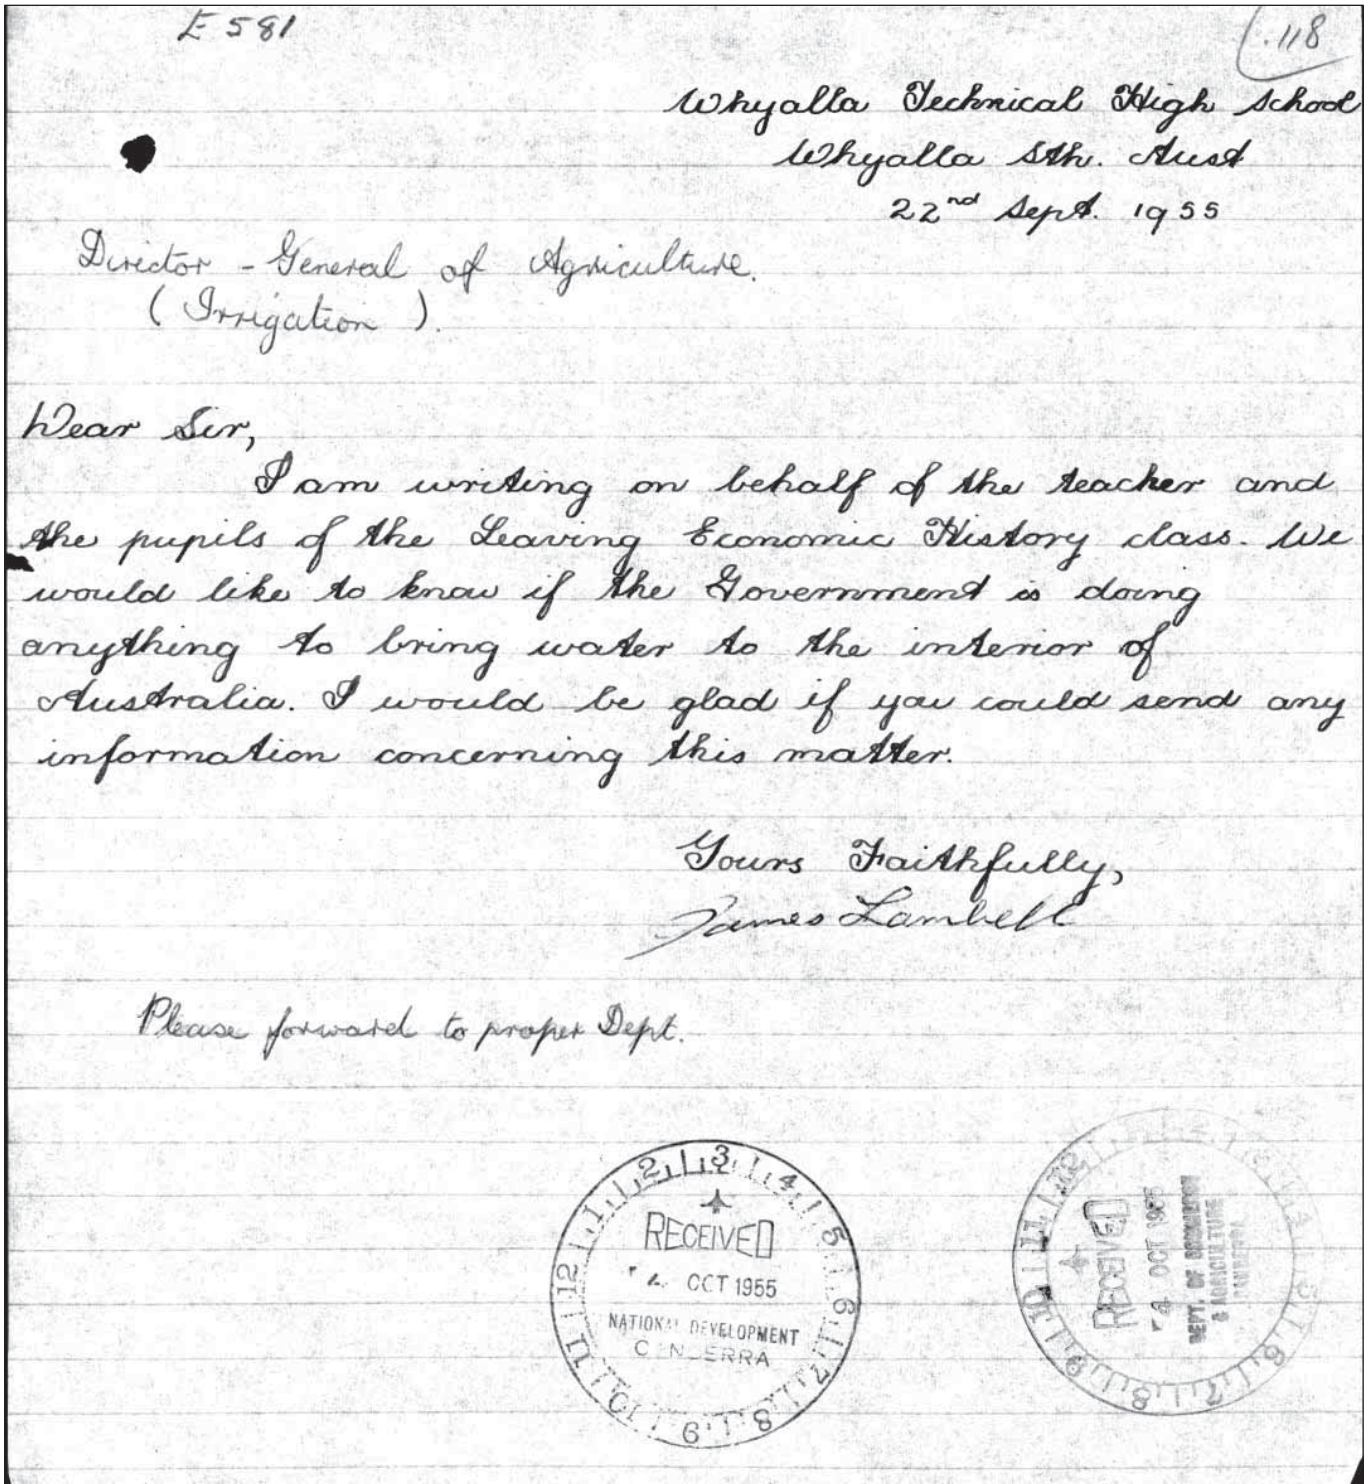 E 581
118
Whyalla Technical High School
Whyalla Sth. Aust
22nd Sept. 1955
Director - General of Agriculture.
(Irrigation).
Dear Sir,
I am writing on behalf of the teacher and
the pupils of the Leaving Economic History class. We
would like to know if the Government is doing
anything to bring water to the interior of
Australia. I would be glad if you could send any
information concerning this matter.
Yours Faithfully,
James Lambell
Please forward to proper Dept.
12 1 2 3 4 5 6 7 8 9 10 11
RECEIVED
4 OCT 1955
NATIONAL DEVELOPMENT
CANBERRA
RECEIVED
4 OCT 1955
DEPT. OF COMMERCE
& AGRICULTURE
CANBERRA
6 7 8 9 10 11 12